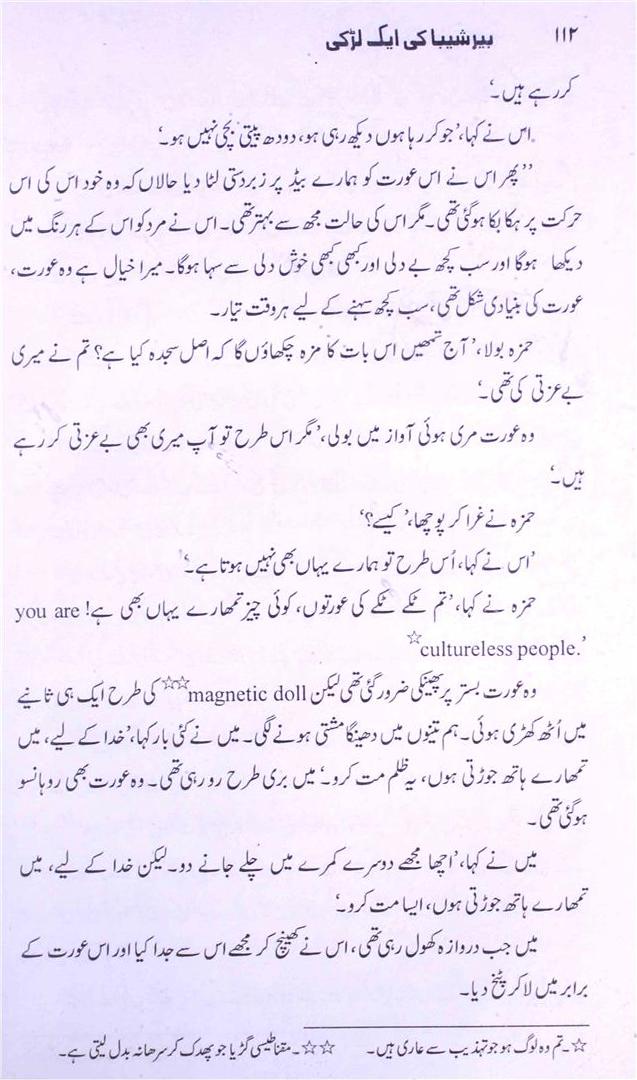 ۱۱۲ بیر شیبا کی ایک لڑکی
کررہے ہیں۔‘
اس نے کہا، ’جو کر رہا ہوں دیکھ رہی ہو، دودھ پیتی بچی نہیں ہو۔‘
’’پھر اس نے اس عورت کو ہمارے بیڈ پر زبردستی لٹا دیا حالاں کہ وہ خود اس کی اس
حرکت پر ہکا بکا ہوگئی تھی۔ مگر اس کی حالت مجھ سے بہتر تھی۔ اس نے مرد کو اس کے ہر رنگ میں
دیکھا ہوگا اور سب کچھ بے دلی اور کبھی کبھی خوش دلی سے سہا ہوگا۔ میرا خیال ہے وہ عورت،
عورت کی بنیادی شکل تھی، سب کچھ سہنے کے لیے ہر وقت تیار۔
حمزہ بولا، ’آج تمھیں اس بات کا مزہ چکھاؤں گا کہ اصل سجدہ کیا ہے؟ تم نے میری
بے عزتی کی تھی۔‘
وہ عورت مری ہوئی آواز میں بولی، ’مگر اس طرح تو آپ میری بھی بے عزتی کر رہے
ہیں۔‘
حمزہ نے غرا کر پوچھا، ’کیسے؟‘
’اس نے کہا، اُس طرح تو ہمارے یہاں بھی نہیں ہوتا ہے۔‘
حمزہ نے کہا، ’تم ٹکے ٹکے کی عورتوں، کوئی چیز تمھارے یہاں بھی ہے! you are
cultureless people.‘☆
وہ عورت بستر پر پھینکی ضرور گئی تھی لیکن magnetic doll☆☆ کی طرح ایک ہی ثانیے
میں اُٹھ کھڑی ہوئی۔ ہم تینوں میں دھینگا مشتی ہونے لگی۔ میں نے کئی بار کہا، ’خدا کے لیے، میں
تمھارے ہاتھ جوڑتی ہوں، یہ ظلم مت کرو۔‘ میں بری طرح رو رہی تھی۔ وہ عورت بھی روہانسو
ہوگئی تھی۔
میں نے کہا، ’اچھا مجھے دوسرے کمرے میں چلے جانے دو۔ لیکن خدا کے لیے، میں
تمھارے ہاتھ جوڑتی ہوں، ایسا مت کرو۔‘
میں جب دروازہ کھول رہی تھی، اس نے کھینچ کر مجھے اس سے جدا کیا اور اس عورت کے
برابر میں لا کر پٹخ دیا۔
☆۔ تم وہ لوگ ہو جو تہذیب سے عاری ہیں۔ ☆☆۔ مقناطیسی گڑیا جو پھدک کر سرھانہ بدل لیتی ہے۔